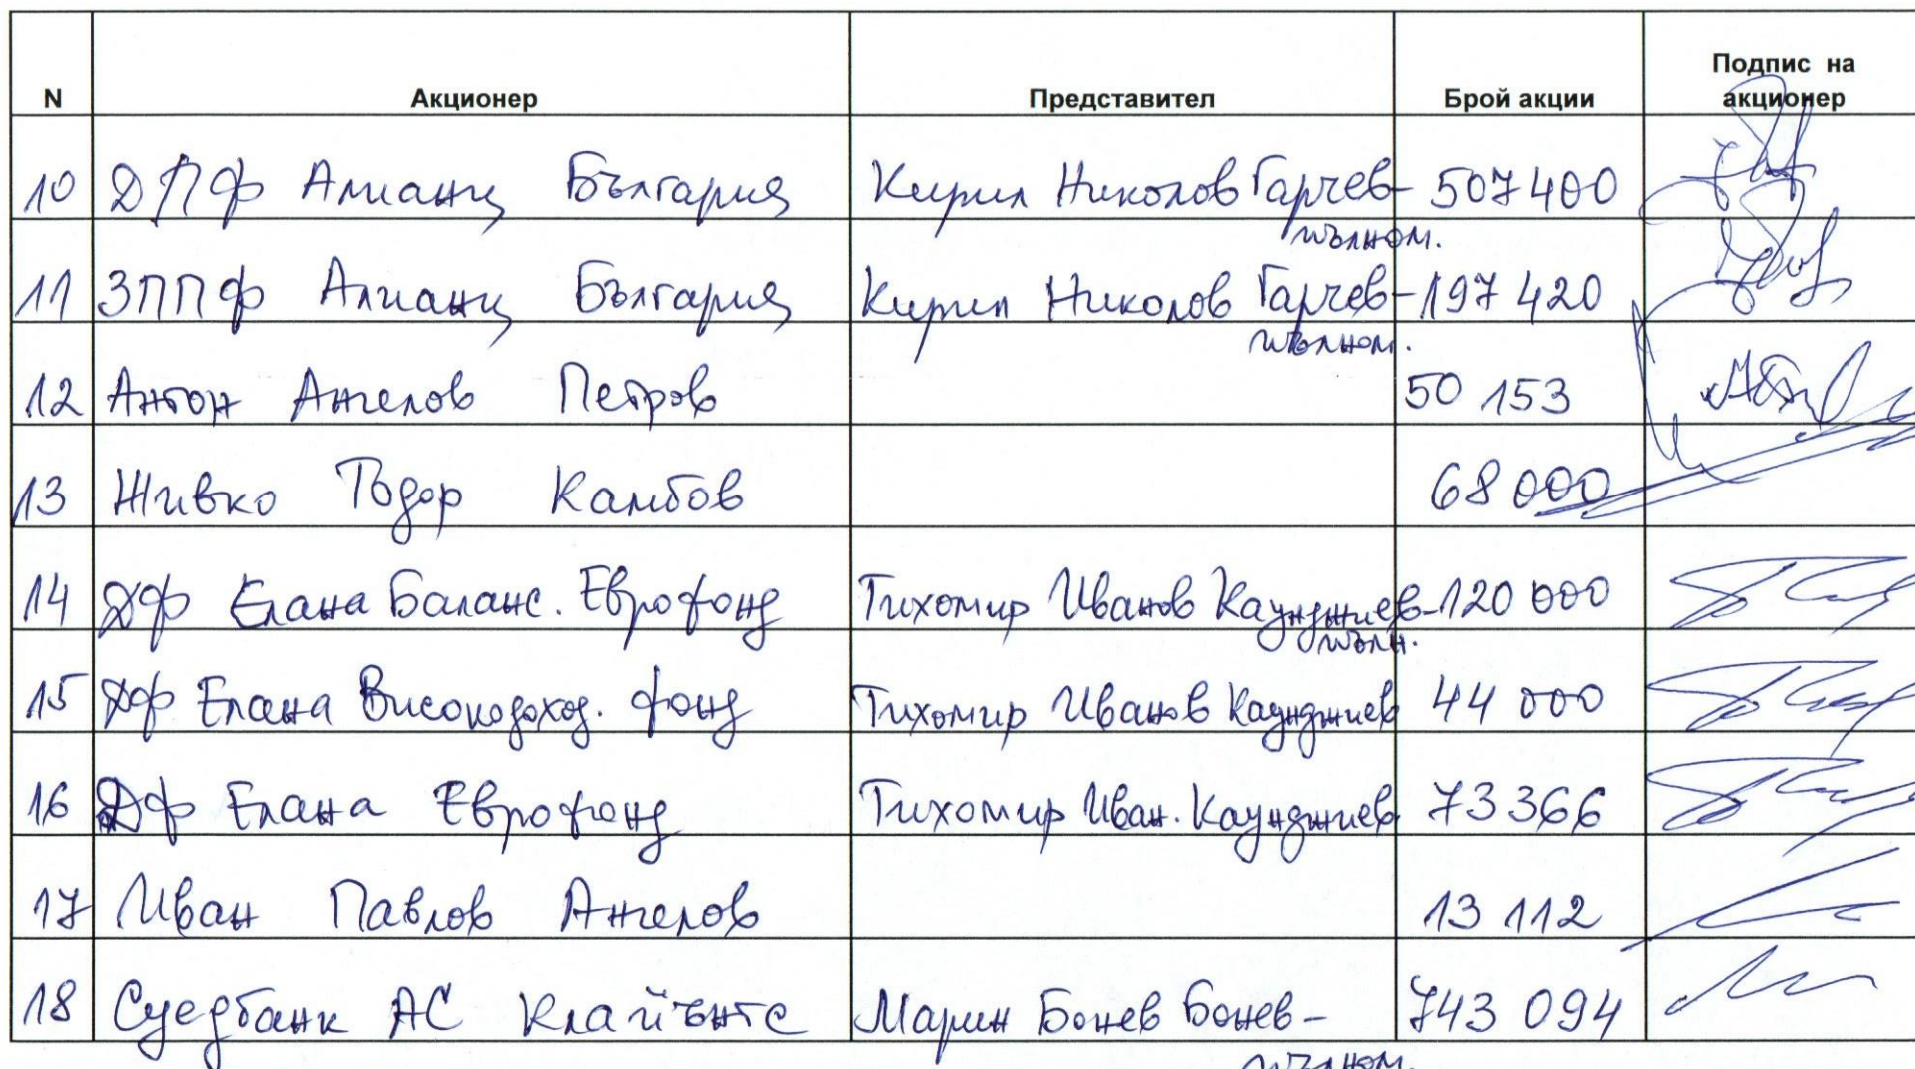 N Акционер Представител Брой акции Подпис на акционер
10 ДПФ Алианц България Кирил Николов Гарчев- 507 400
пълном.
11 ЗППФ Алианц България Кирил Николов Гарчев- 197 420
пълном.
12 Антон Ангелов Петров 50 153
13 Живко Тодор Камбов 68 000
14 ДФ Елана Баланс. Еврофонд Тихомир Иванов Каунджиев- 120 000
пълн.
15 ДФ Елана Високодоход. фонд Тихомир Иванов Каунджиев 44 000
16 ДФ Елана Еврофонд Тихомир Иван. Каунджиев 73 366
17 Иван Павлов Ангелов 13 112
18 Суедбанк АС Клайънтс Марин Бонев Бонев- 743 094
пълном.